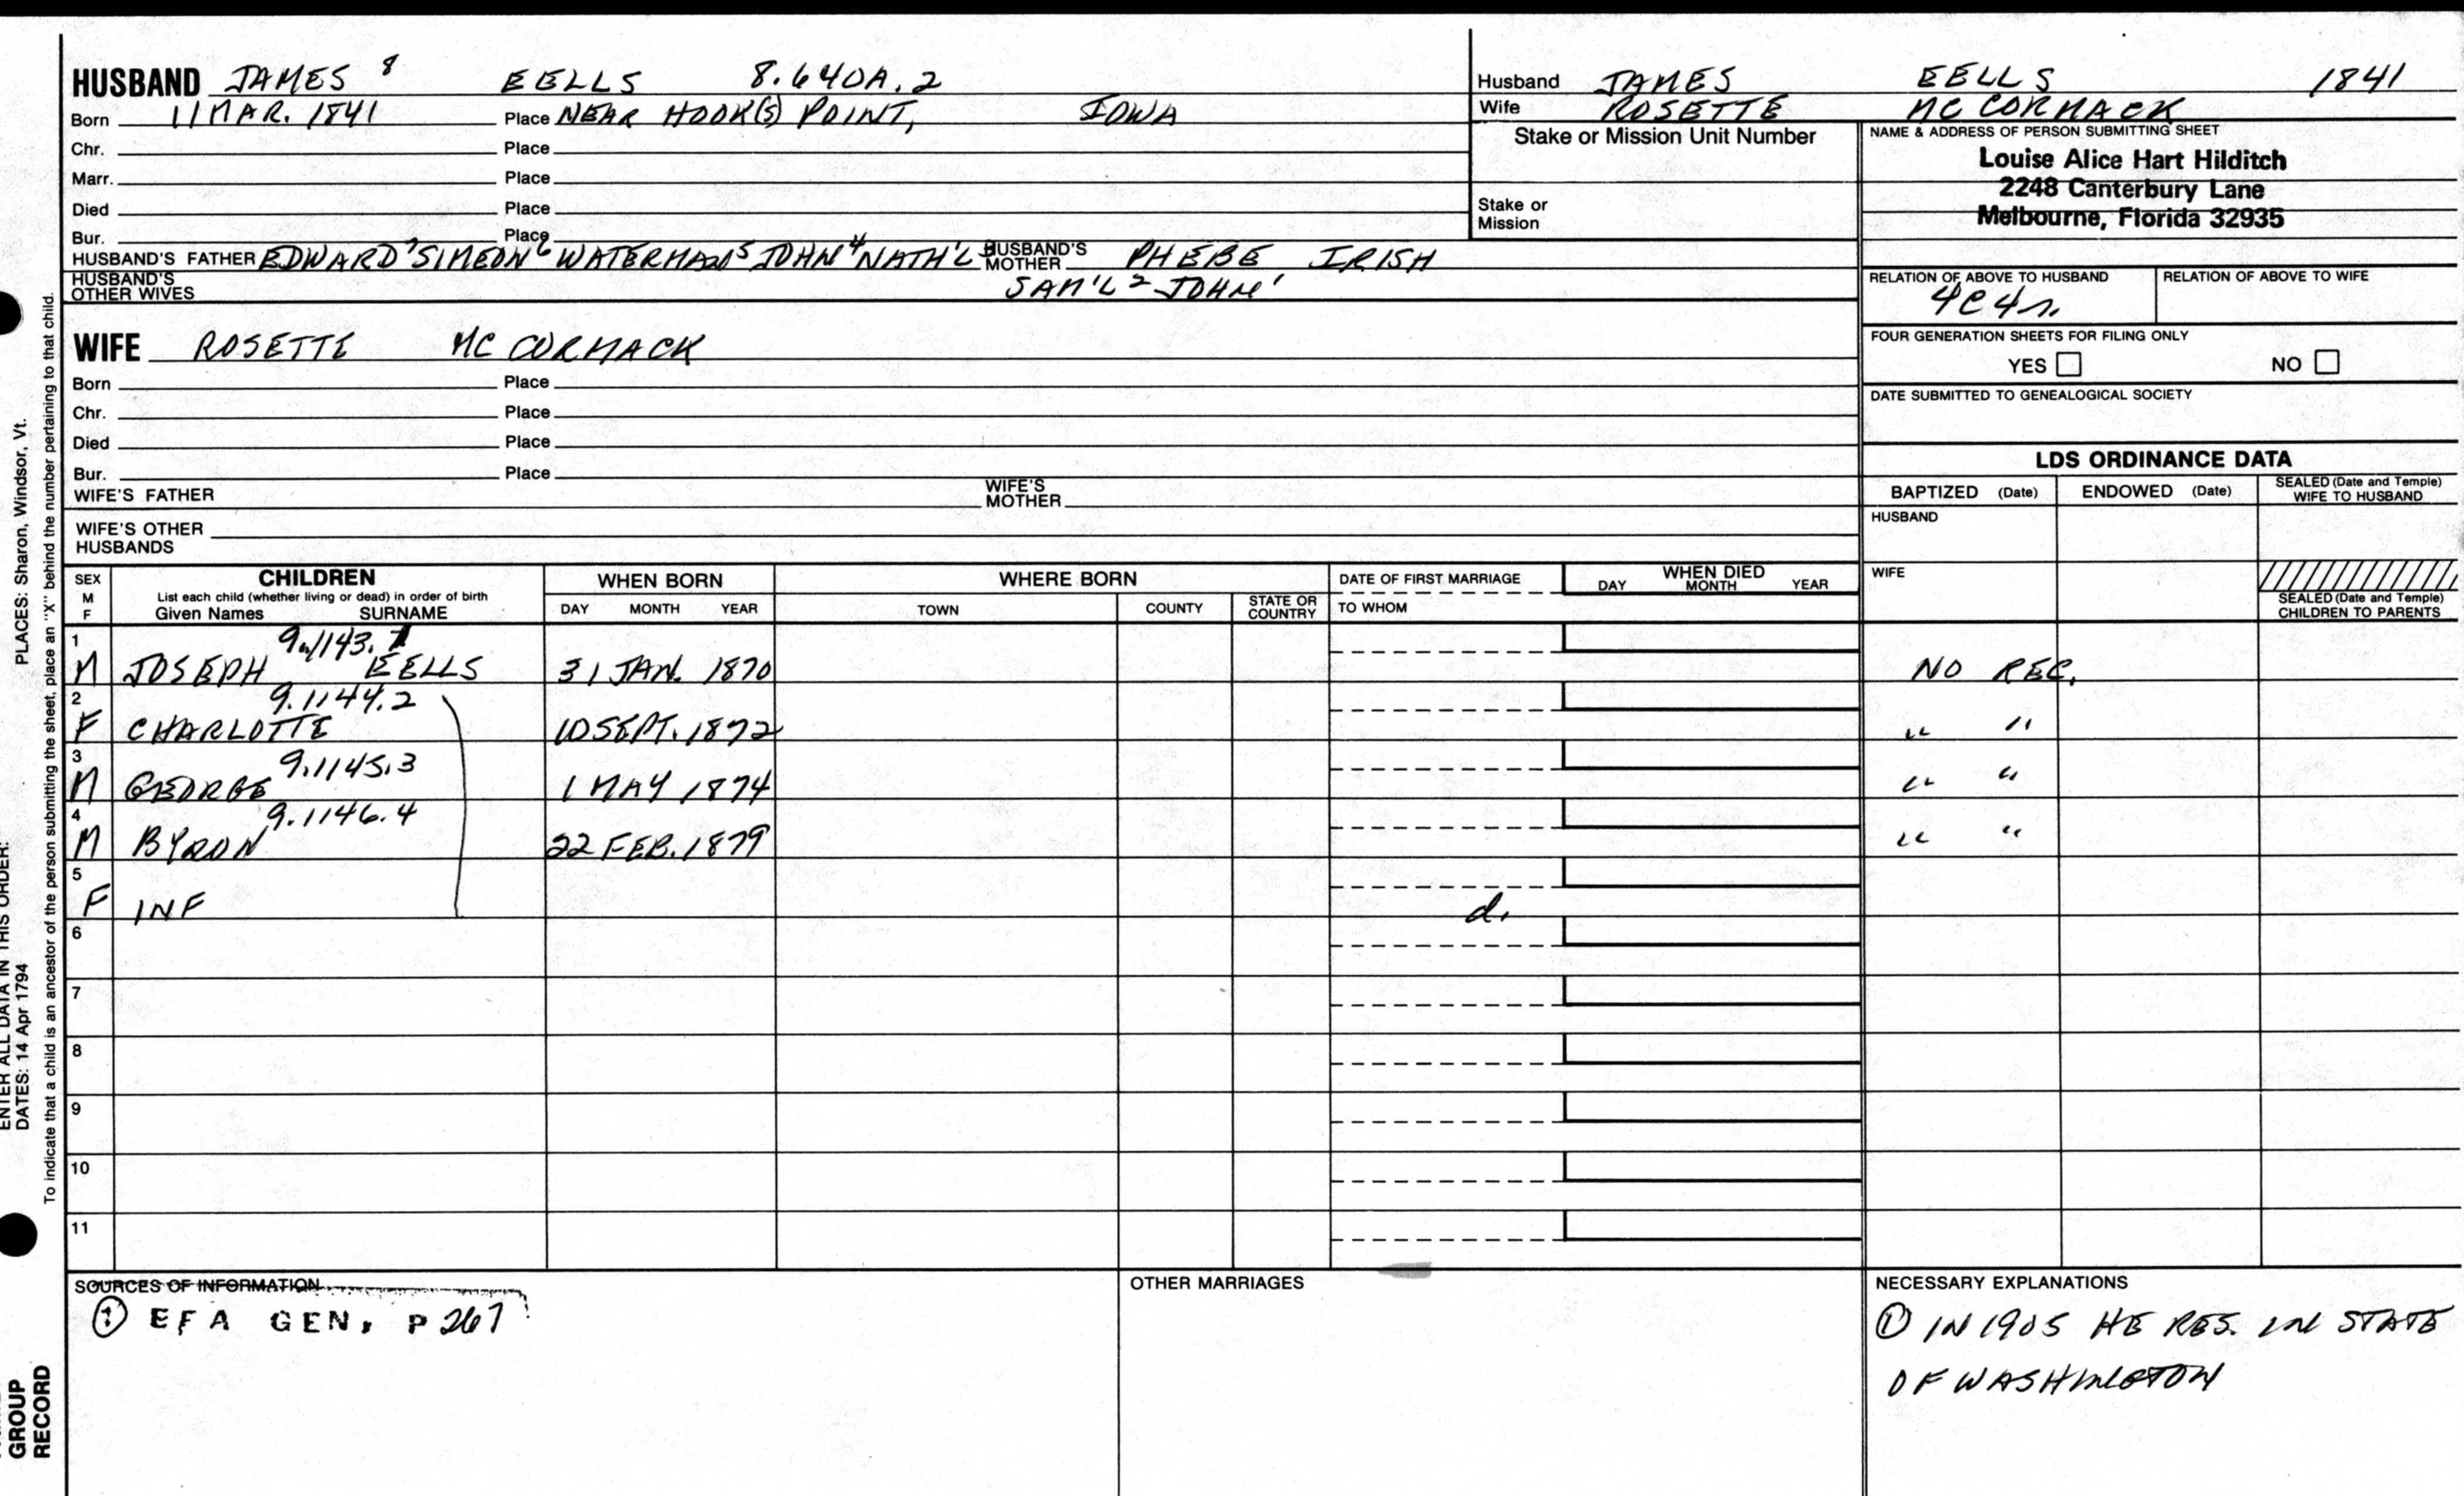 HUSBAND JAMES 8 EELLS 8.640A.2
Born 11 MAR. 1841 Place NEAR HOOK(S) POINT, IOWA
Chr. Place
Marr. Place
Died Place
Bur. Place
HUSBAND'S FATHER EDWARD 7 SIMEON 6 WATERMAN 5 JOHN 4 NATH'L HUSBAND'S MOTHER PHEBE IRISH
HUSBAND'S OTHER WIVES SAM'L 2 JOHN 1
WIFE ROSETTE MC CORMACK
Born Place
Chr. Place
Died Place
Bur. Place
WIFE'S FATHER WIFE'S MOTHER
WIFE'S OTHER HUSBANDS
Husband JAMES EELLS 1841
Wife ROSETTE MC CORMACK
Stake or Mission Unit Number
Stake or Mission
NAME & ADDRESS OF PERSON SUBMITTING SHEET
Louise Alice Hart Hilditch
2248 Canterbury Lane
Melbourne, Florida 32935
RELATION OF ABOVE TO HUSBAND RELATION OF ABOVE TO WIFE
4C4r.
FOUR GENERATION SHEETS FOR FILING ONLY
YES NO
DATE SUBMITTED TO GENEALOGICAL SOCIETY
LDS ORDINANCE DATA
BAPTIZED (Date) ENDOWED (Date) SEALED (Date and Temple) WIFE TO HUSBAND
HUSBAND
WIFE
SEALED (Date and Temple) CHILDREN TO PARENTS
SEX M F CHILDREN WHEN BORN WHERE BORN DATE OF FIRST MARRIAGE WHEN DIED
List each child (whether living or dead) in order of birth
Given Names SURNAME DAY MONTH YEAR TOWN COUNTY STATE OR COUNTRY TO WHOM DAY MONTH YEAR
1 9.1143.1
M JOSEPH EELLS 31 JAN. 1870 NO REC.
2 9.1144.2
F CHARLOTTE 10 SEPT. 1872 " "
3 9.1145.3
M GEORGE 1 MAY 1874 " "
4 9.1146.4
M BYRON 22 FEB. 1879 " "
5
F INF d.
6
7
8
9
10
11
SOURCES OF INFORMATION
① EFA GEN, P 267
OTHER MARRIAGES
NECESSARY EXPLANATIONS
① IN 1905 HE RES. IN STATE
OF WASHINGTON
ENTER ALL DATA IN THIS ORDER:
DATES: 14 Apr 1794 PLACES: Sharon, Windsor, Vt.
To indicate that a child is an ancestor of the person submitting the sheet, place an "X" behind the number pertaining to that child.
GROUP
RECORD